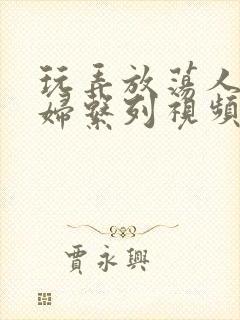 玩弄放蕩人
婦繫列視頻
賈永興